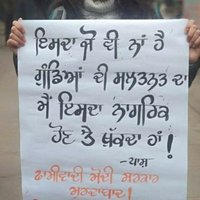 ਇਸਦਾ ਜੋ ਵੀ ਨਾਂ ਹੈ
ਗੁੰਡਿਆਂ ਦੀ ਸਲਤਨਤ ਦਾ
ਮੈਂ ਇਸਦਾ ਨਾਗਰਿਕ
ਹੋਣ ਤੇ ਥੁੱਕਦਾ ਹਾਂ!
- ਪਾਸ਼
ਫਾਸੀਵਾਦੀ ਮੋਦੀ ਸਰਕਾਰ
ਮੁਰਦਾਬਾਦ!